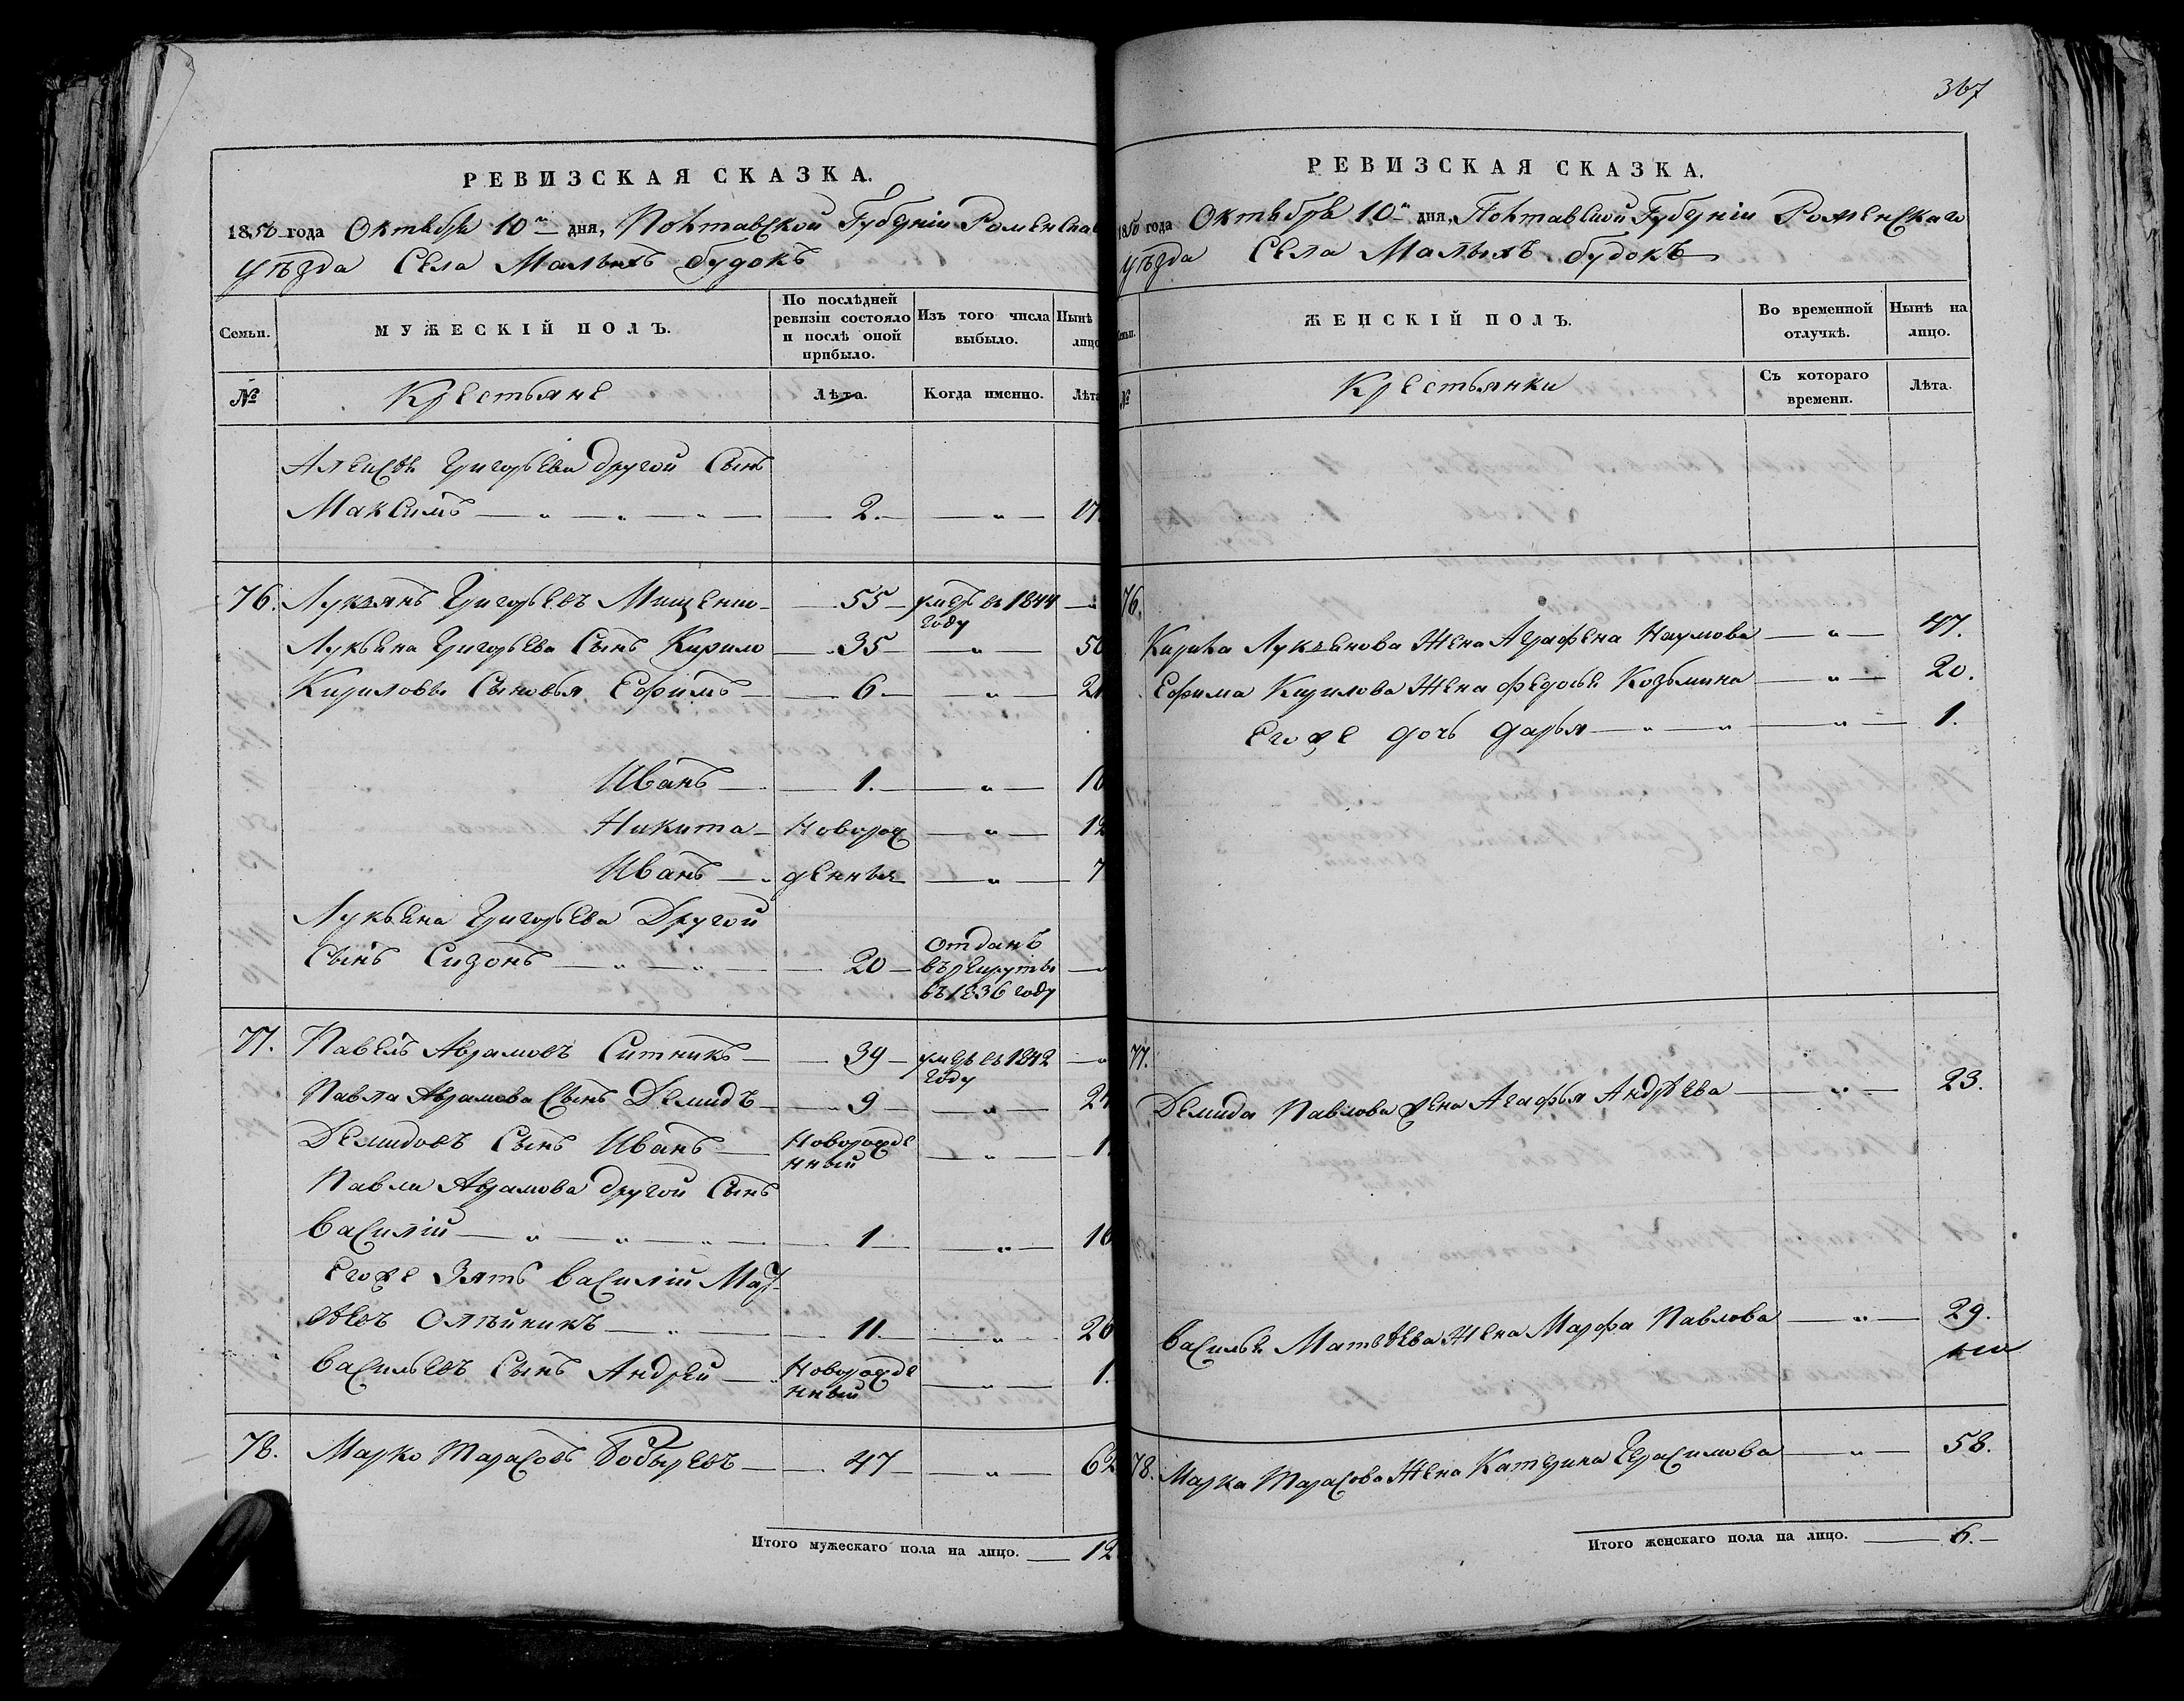 РЕВИЗСКАЯ СКАЗКА.
1850 года Октября 10го дня, Полтавской Губерніи Роменскаго
уѣзда Села Малыхъ будокъ
Семьи.
МУЖЕСКІЙ ПОЛЪ.
По послѣдней ревизіи состояло и послѣ оной прибыло.
Изъ того числа выбыло.
Нынѣ лицо
№
Крестьяне
Лѣта.
Когда именно.
Лѣта
Алексѣя Григорьева другой Сынъ
Максимъ — „ — „ — „ — 2. — „ — 17
76. Лукьянъ Григорьевъ Мищенко — 55 — умеръ въ 1844 году — „
Лукьяна Григорьева Сынъ Кирило — 35 — „ — 50
Кириловы Сыновья Ефимъ — 6. — „ — 21
Иванъ — 1. — „ — 16
Никита — Новорож — „ — 12
Иванъ — денные — „ — 7
Лукьяна Григорьева Другой
Сынъ Сизонъ — „ — „ — 20 — отданъ въ рекруты въ 1836 году — „
77. Павелъ Аврамовъ Ситникъ — 39 — умеръ въ 1842 году — „
Павла Аврамова Сынъ Демидъ — 9 — „ — 24
Демидовъ Сынъ Иванъ — Новорожденный — „ — 1
Павла Аврамова другой Сынъ
Василій — „ — „ — „ — 1 — „ — 16
Егоже Зять Василій Мат-
вѣевъ Олѣйникъ — „ — 11. — „ — 26
Васильевъ Сынъ Андрей — Новорожденный — „ — 1.
78. Марко Тарасовъ Бобыревъ — 47 — „ — 62
Итого мужескаго пола на лицо. — 12
367
РЕВИЗСКАЯ СКАЗКА.
1850 года Октября 10го дня, Полтавской Губерніи Роменскаго
уѣзда Села Малыхъ будокъ
Семьи.
ЖЕНСКІЙ ПОЛЪ.
Во временной отлучкѣ.
Нынѣ на лицо.
№
Крестьянки
Съ котораго времени.
Лѣта.
76.
Кирила Лукьянова Жена Аграфена Наумова — „ — 47.
Ефима Кирилова Жена Федосья Козьмина — „ — 20.
Егоже дочь Дарья — „ — „ — „ — 1.
77.
Демида Павлова жена Агафья Андрѣева — „ — 23.
Василья Матвѣева Жена Марфа Павлова — „ — 29.
78. Марка Тарасова Жена Катерина Герасимова — „ — 58.
Итого женскаго пола на лицо. — 6. —